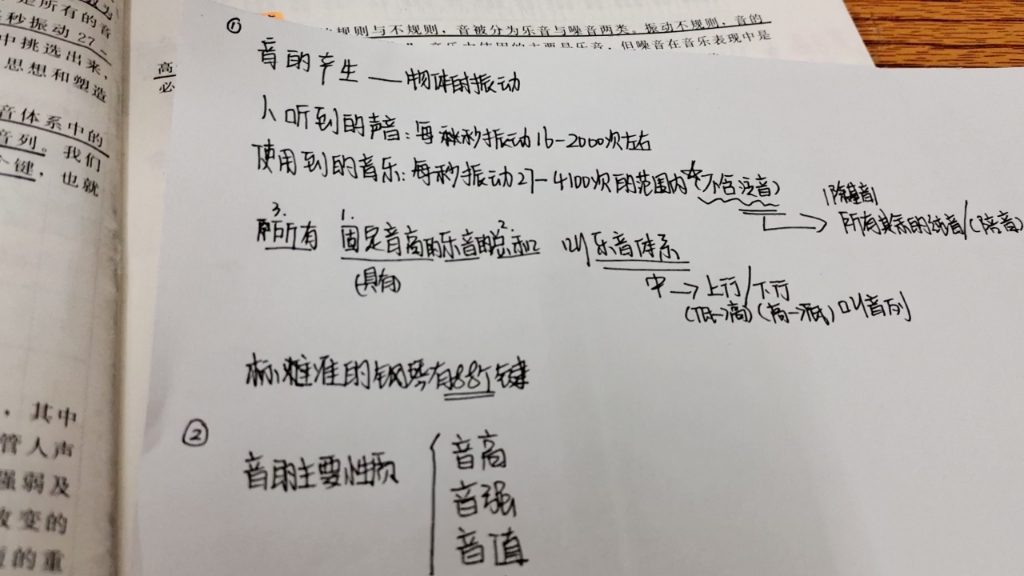 是所有的音
秒振动 27-
中挑选出来，
思想和塑造
音体系中的
音列。我们
个键，也就
，其中
管人声
强弱及
改变的
的重
规则与不规则，音被分为乐音与噪音两类。振动不规则，音的
但噪音在音乐表现中是
高
必
①
音的产生 — 物体的振动
人听到的声音：每秒振动16-2000次左右
使用到的音乐：每秒振动27-4100次的范围内（不含泛音）
所有其余的
3. 1. 2.
所有 固定音高的乐音的总和 叫乐音体系
(具有)
中→上行/下行
(低-高)(高-低)叫音列
标准的钢琴有88个键
②
音的主要性质
音高
音强
音值